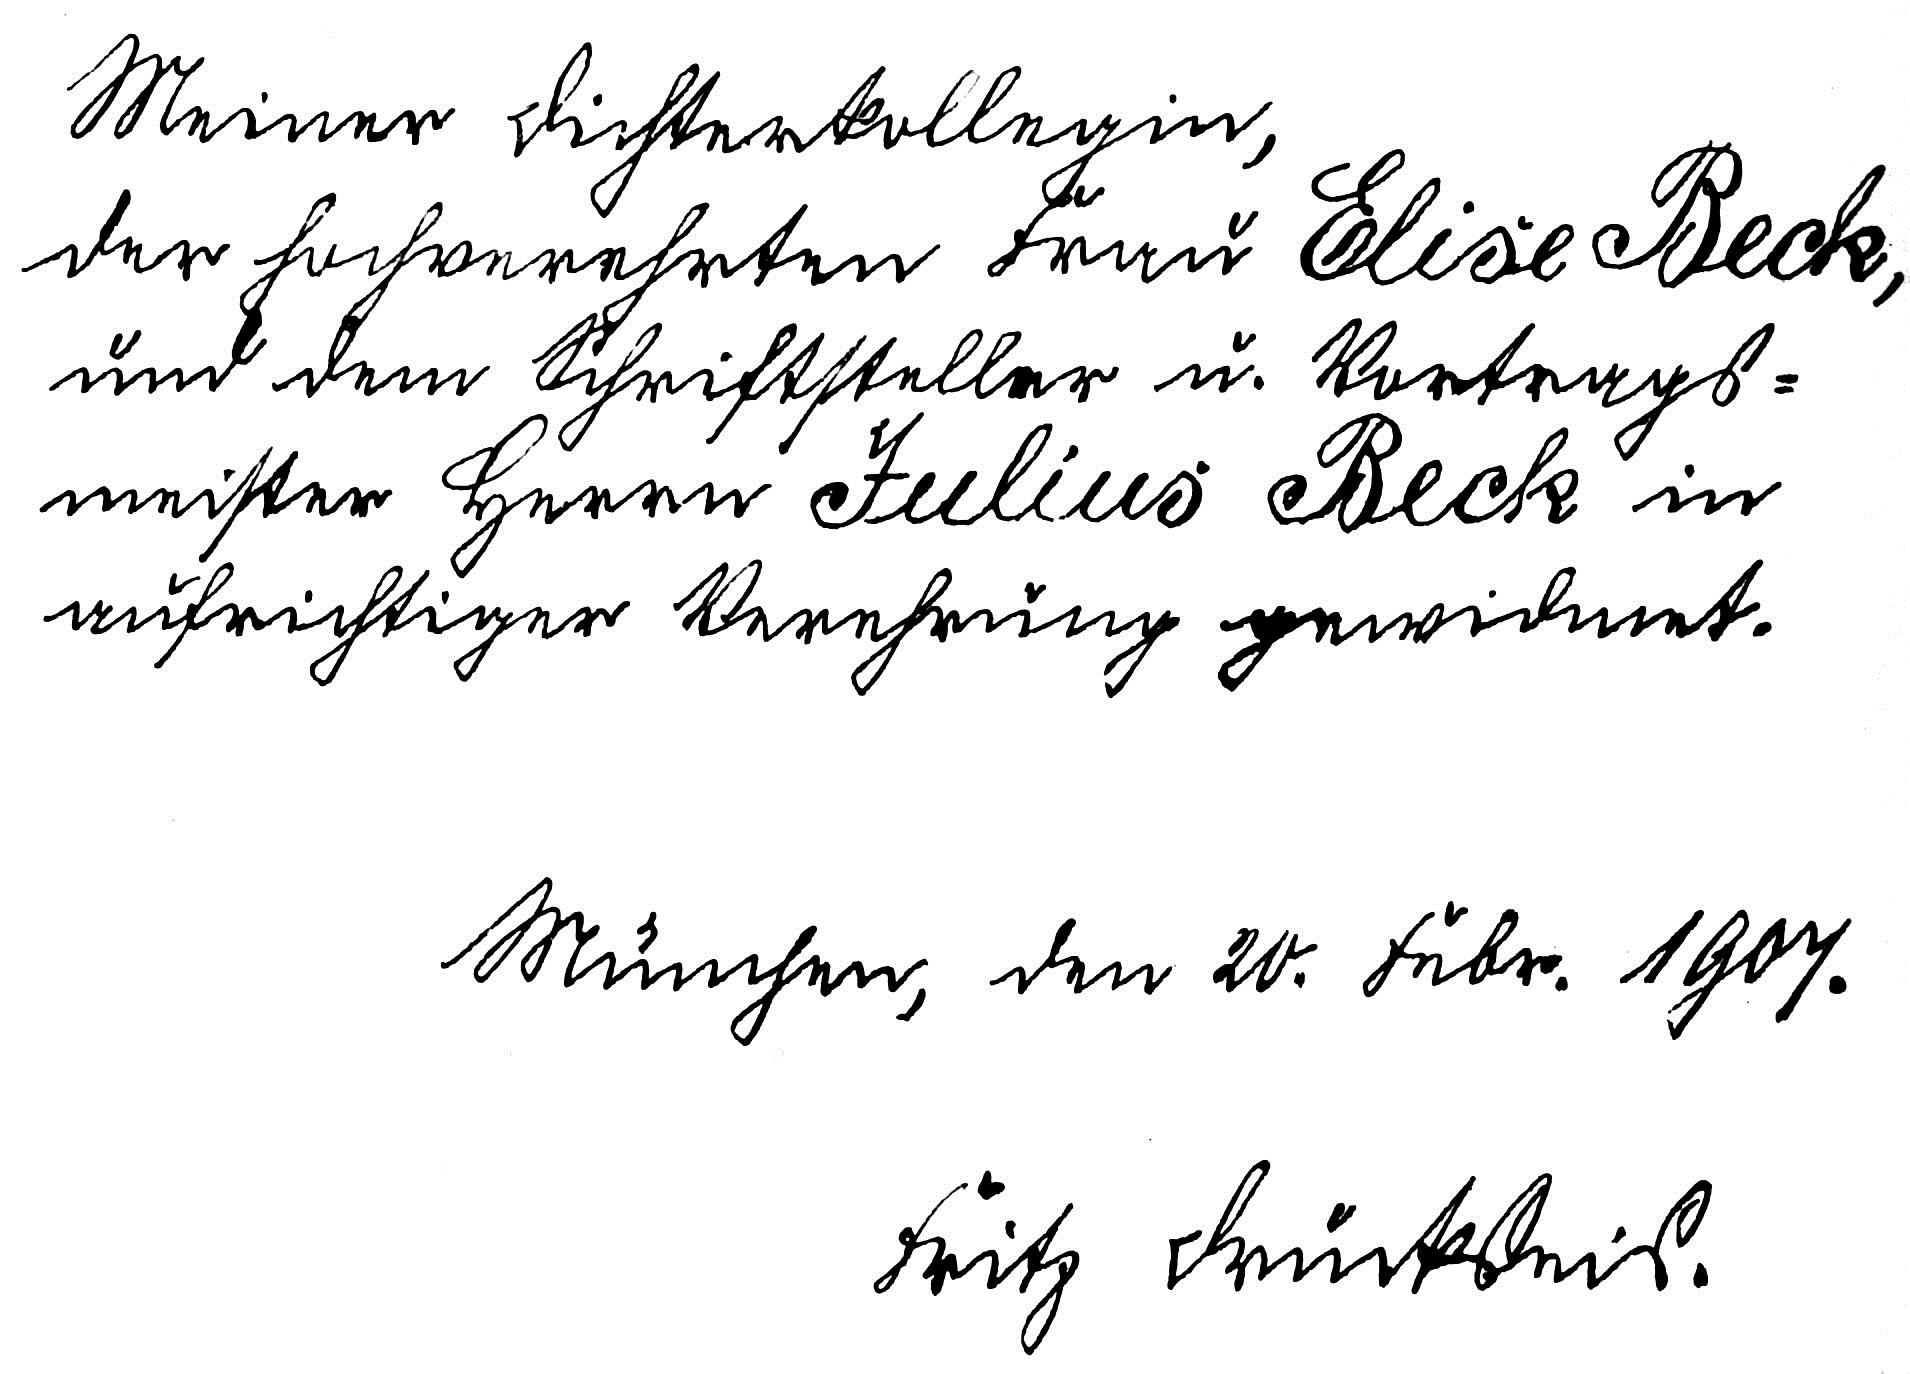 Meiner Dichterkollegin,
der hochverehrten Frau Elise Beck,
und dem Schriftsteller u. Vortrags=
meister Herrn Julius Beck in
aufrichtiger Verehrung gewidmet.
München, den 20. Febr. 1907.
Fritz Druckseis.